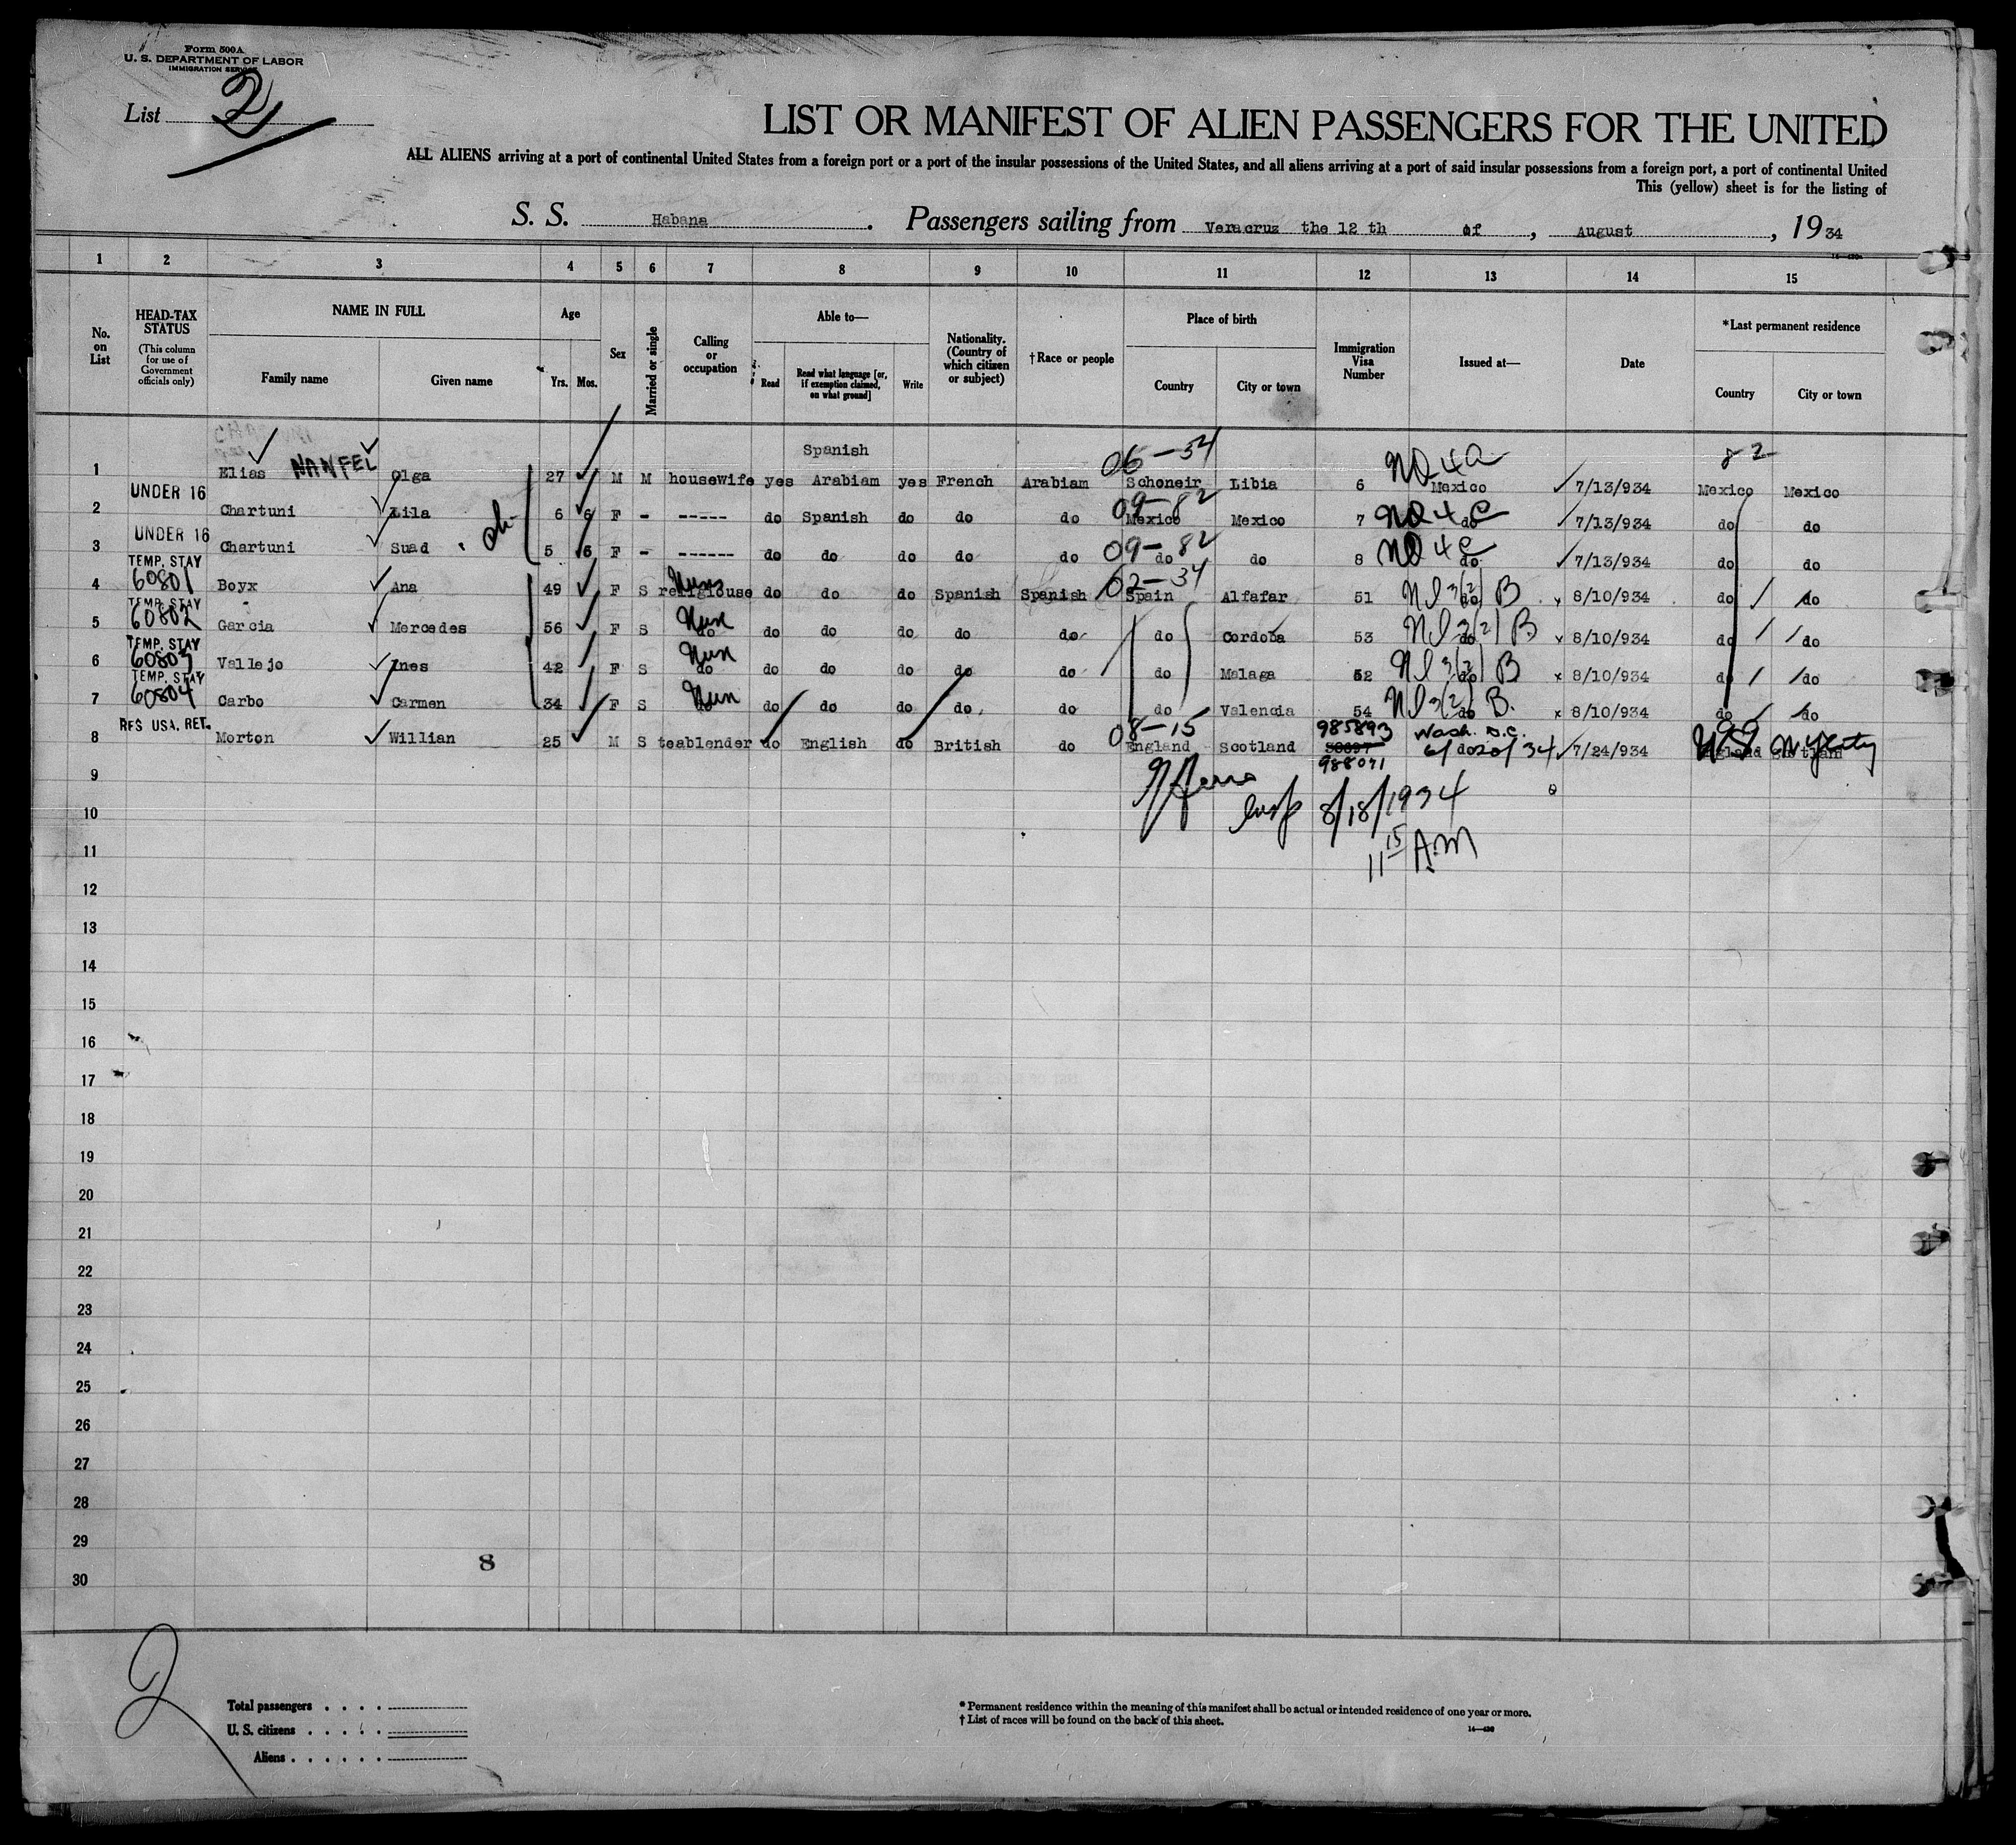 Form 500A
U. S. DEPARTMENT OF LABOR
IMMIGRATION SERVICE
List 2
LIST OR MANIFEST OF ALIEN PASSENGERS FOR THE UNITED
ALL ALIENS arriving at a port of continental United States from a foreign port or a port of the insular possessions of the United States, and all aliens arriving at a port of said insular possessions from a foreign port, a port of continental United
This (yellow) sheet is for the listing of
S. S. Habana . Passengers sailing from Veracruz the 12 th of , August , 19 34
1 2 3 4 5 6 7 8 9 10 11 12 13 14 15
No. on List
HEAD-TAX STATUS (This column for use of Government officials only)
NAME IN FULL
Family name Given name
Age
Yrs. Mos.
Sex
Married or single
Calling or occupation
Able to—
Read Read what language [or, if exemption claimed, on what ground] Write
Nationality. (Country of which citizen or subject)
†Race or people
Place of birth
Country City or town
Immigration Visa Number
Issued at—
Date
*Last permanent residence
Country City or town
Spanish 06-54 NQ 4a 82
1 Elias NANFEL Olga 27 M M housewife yes Arabiam yes French Arabiam Schoneir Libia 6 Mexico 7/13/934 Mexico Mexico
UNDER 16 09-82 NQ 4 C
2 Chartuni Lila 6 6 F - ----- do Spanish do do do Mexico Mexico 7 do 7/13/934 do do
UNDER 16 09-82 NQ 4 C
3 Chartuni Suad 5 6 F - ------ do do do do do do do 8 do 7/13/934 do do
TEMP. STAY 60801 Nun 02-34 3(2) B
4 Boyx Ana 49 F S religiouse do do do Spanish Spanish Spain Alfafar 51 do 8/10/934 do do
TEMP. STAY 60802 Nun 3(2) B
5 Garcia Mercedes 56 F S do do do do do do do Cordoba 53 do 8/10/934 do do
TEMP. STAY 60803 Nun 3(2) B
6 Vallejo Ines 42 F S do do do do do do do Malaga 52 do 8/10/934 do do
TEMP. STAY 60804 Nun 3(2) B.
7 Carbo Carmen 34 F S do do do do do do do Valencia 54 do 8/10/934 do do
RES USA. RET. 08-15 985893 Wash. D.C.
8 Morton Willian 25 M S teablender do English do British do England Scotland 6/20/34 do 7/24/934 US N y City
988071
9
insp 8/18/1934
10
11 15 AM
11
12
13
14
15
16
17
18
19
20
21
22
23
24
25
26
27
28
29
8
30
2
Total passengers
U. S. citizens
Aliens
* Permanent residence within the meaning of this manifest shall be actual or intended residence of one year or more.
† List of races will be found on the back of this sheet.
14—430